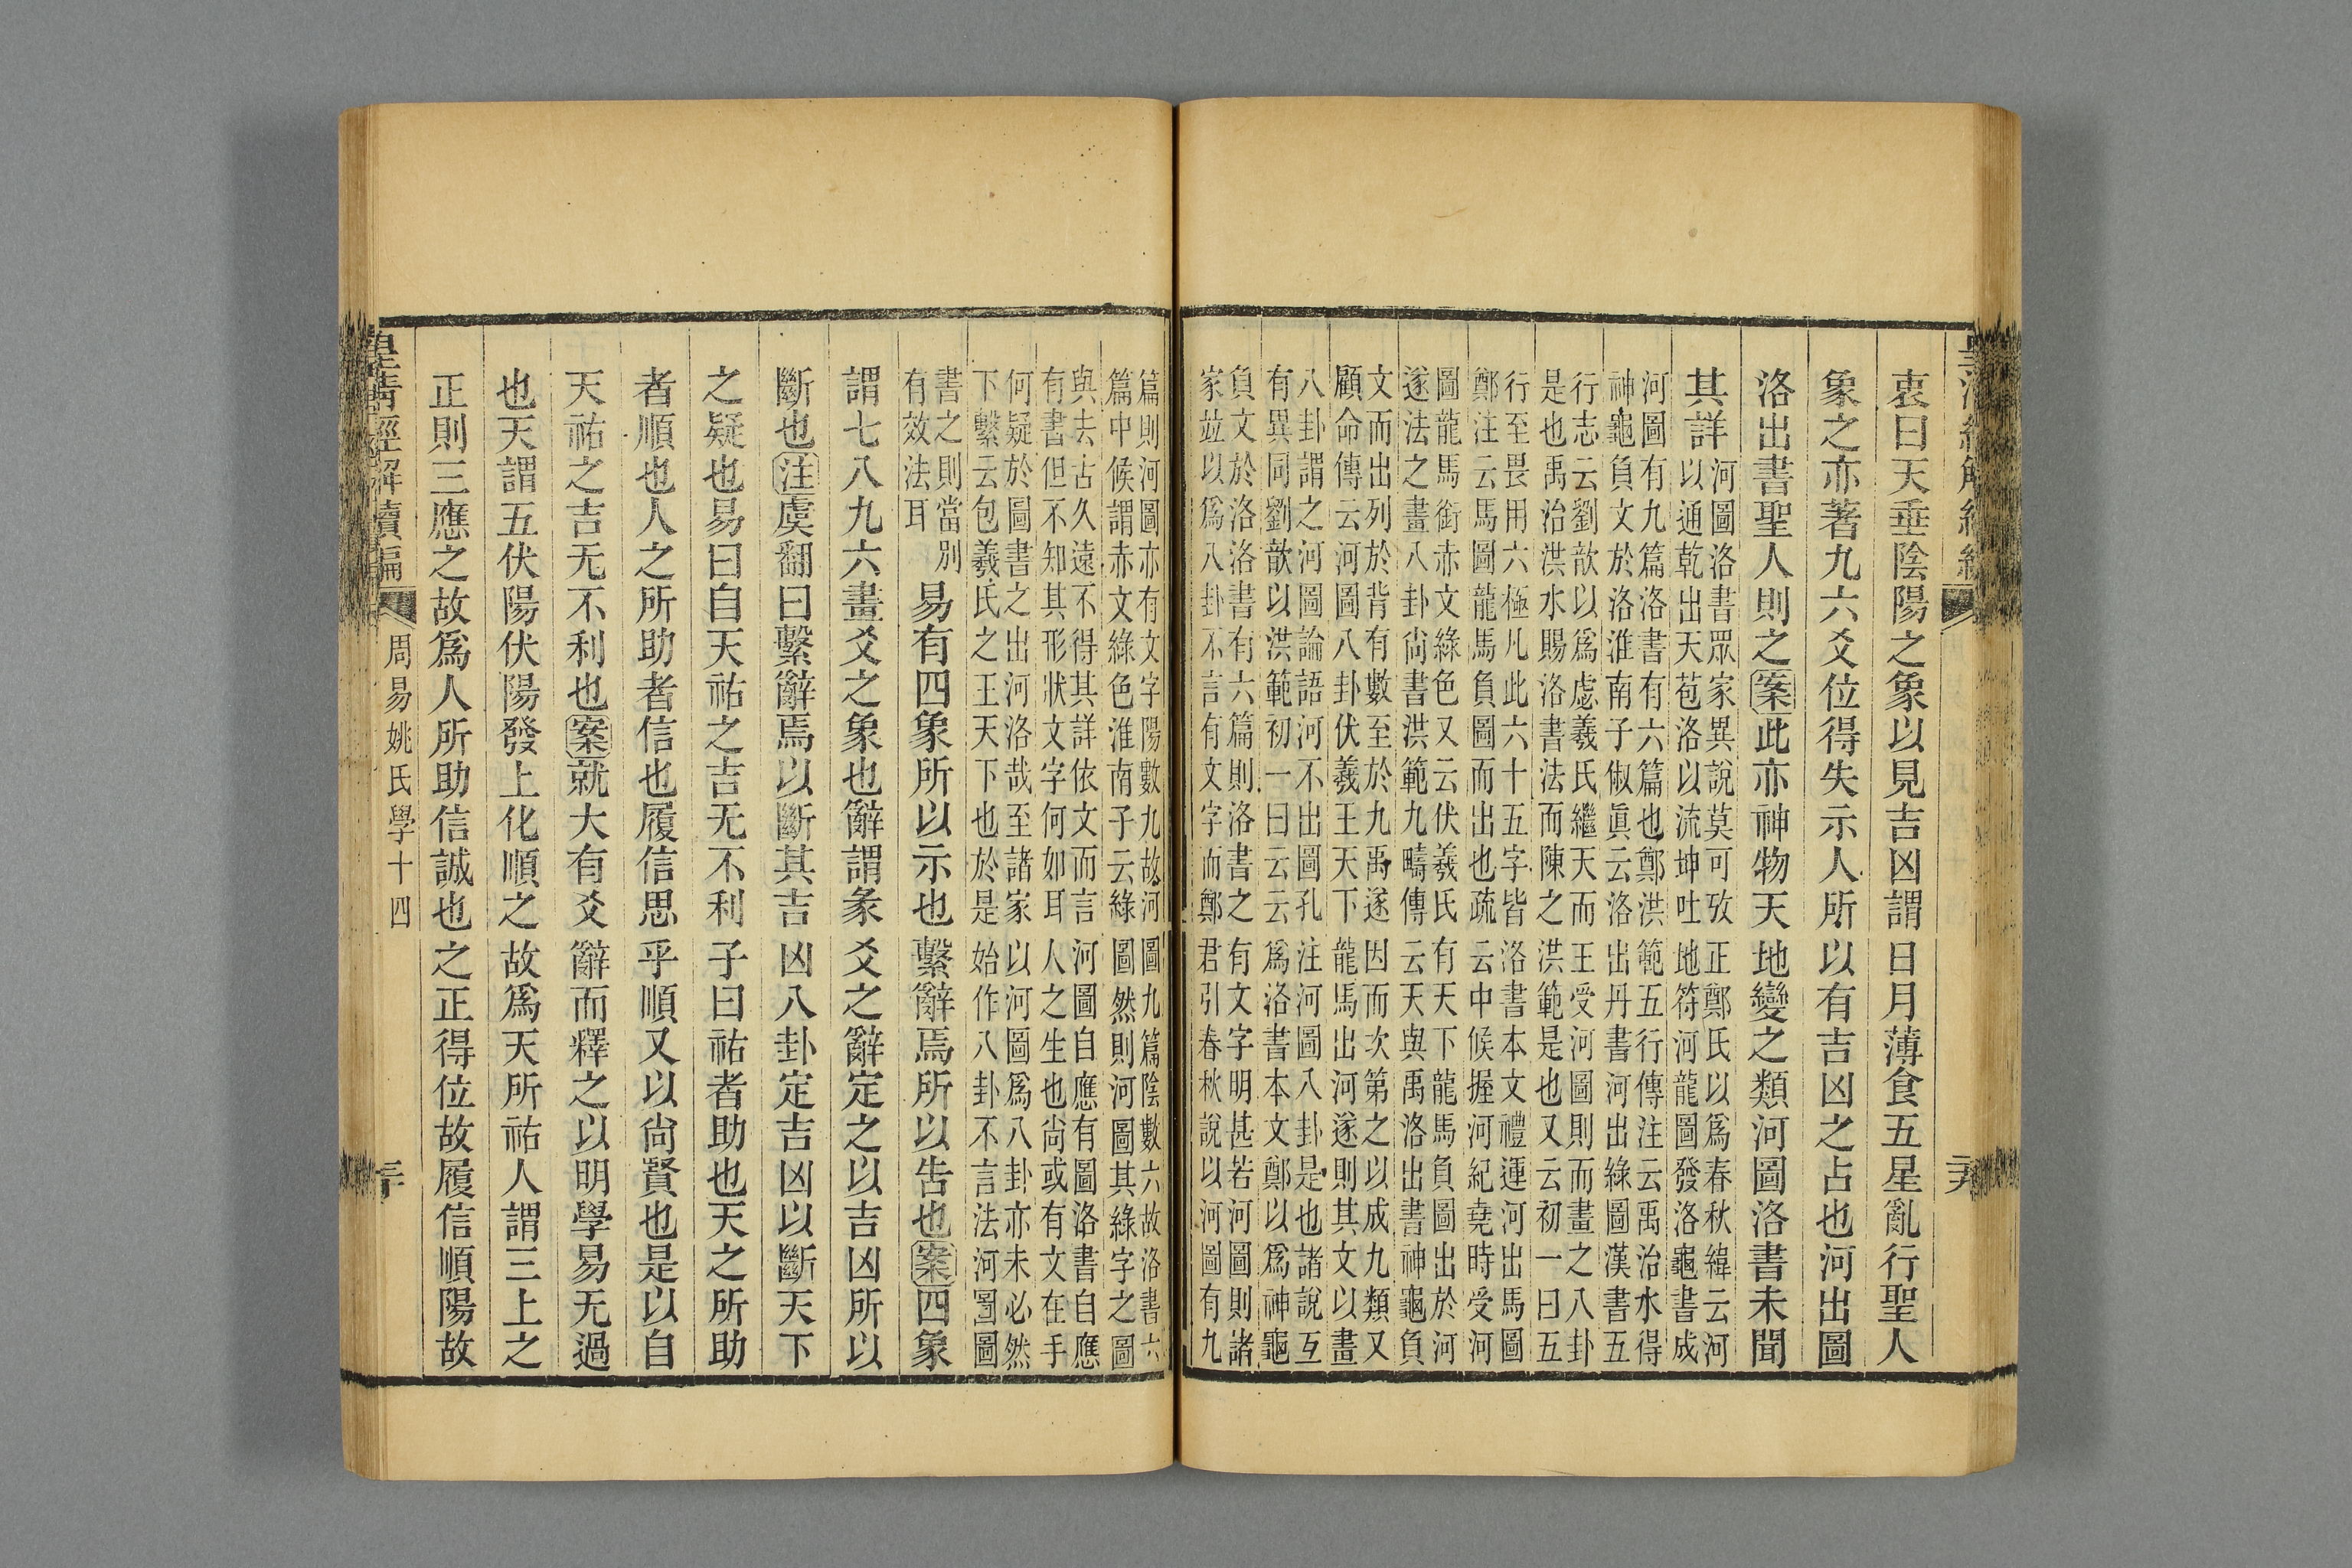 衷曰天垂陰陽之象以見吉凶謂日月薄食五星亂行聖人
象之亦著九六爻位得失示人所以有吉凶之占也河出圖
洛出書聖人則之案此亦神物天地變之類河圖洛書未聞
其詳河圖洛書眾家異說莫可攷正鄭氏以爲春秋緯云河
以通乾出天苞洛以流坤吐地符河龍圖發洛龜書成
河圖有九篇洛書有六篇也鄭洪範五行傳注云禹治水得
神龜負文於洛淮南子俶眞云洛出丹書河出綠圖漢書五
行志云劉歆以爲虙羲氏繼天而王受河圖則而畫之八卦
是也禹治洪水賜洛書法而陳之洪範是也又云初一曰五
行至畏用六極凡此六十五字皆洛書本文禮運河出馬圖
鄭注云馬圖龍馬負圖而出也疏云中候握河紀堯時受河
圖龍馬銜赤文綠色又云伏羲氏有天下龍馬負圖出於河
遂法之畫八卦尙書洪範九疇傳云天與禹洛出書神龜負
文而出列於背有數至於九禹遂因而次第之以成九類又
顧命傳云河圖八卦伏羲王天下龍馬出河遂則其文以畫
八卦謂之河圖論語河不出圖孔注河圖八卦是也諸說互
有異同劉歆以洪範初一曰云云爲洛書本文鄭以爲神龜
負文於洛洛書有六篇則洛書之有文字明甚若河圖則諸
家竝以爲八卦不言有文字而鄭君引春秋說以河圖有九
篇則河圖亦有文字陽數九故河圖九篇陰數六故洛書六
篇中候謂赤文綠色淮南子云綠圖然則河圖其綠字之圖
與去古久遠不得其詳依文而言河圖自應有圖洛書自應
有書但不知其形狀文字何如耳人之生也尙或有文在手
何疑於圖書之出河洛哉至諸家以河圖爲八卦亦未必然
下繫云包羲氏之王天下也於是始作八卦不言法河圖圖
書之則當別
有效法耳
易有四象所以示也繫辭焉所以告也案四象
謂七八九六畫爻之象也辭謂彖爻之辭定之以吉凶所以
斷也注虞翻曰繫辭焉以斷其吉凶八卦定吉凶以斷天下
之疑也易曰自天祐之吉无不利子曰祐者助也天之所助
者順也人之所助者信也履信思乎順又以尙賢也是以自
天祐之吉无不利也案就大有爻辭而釋之以明學易无過
也天謂五伏陽伏陽發上化順之故爲天所祐人謂三上之
正則三應之故爲人所助信誠也之正得位故履信順陽故
皇清經解續編
周易姚氏學十四
三十